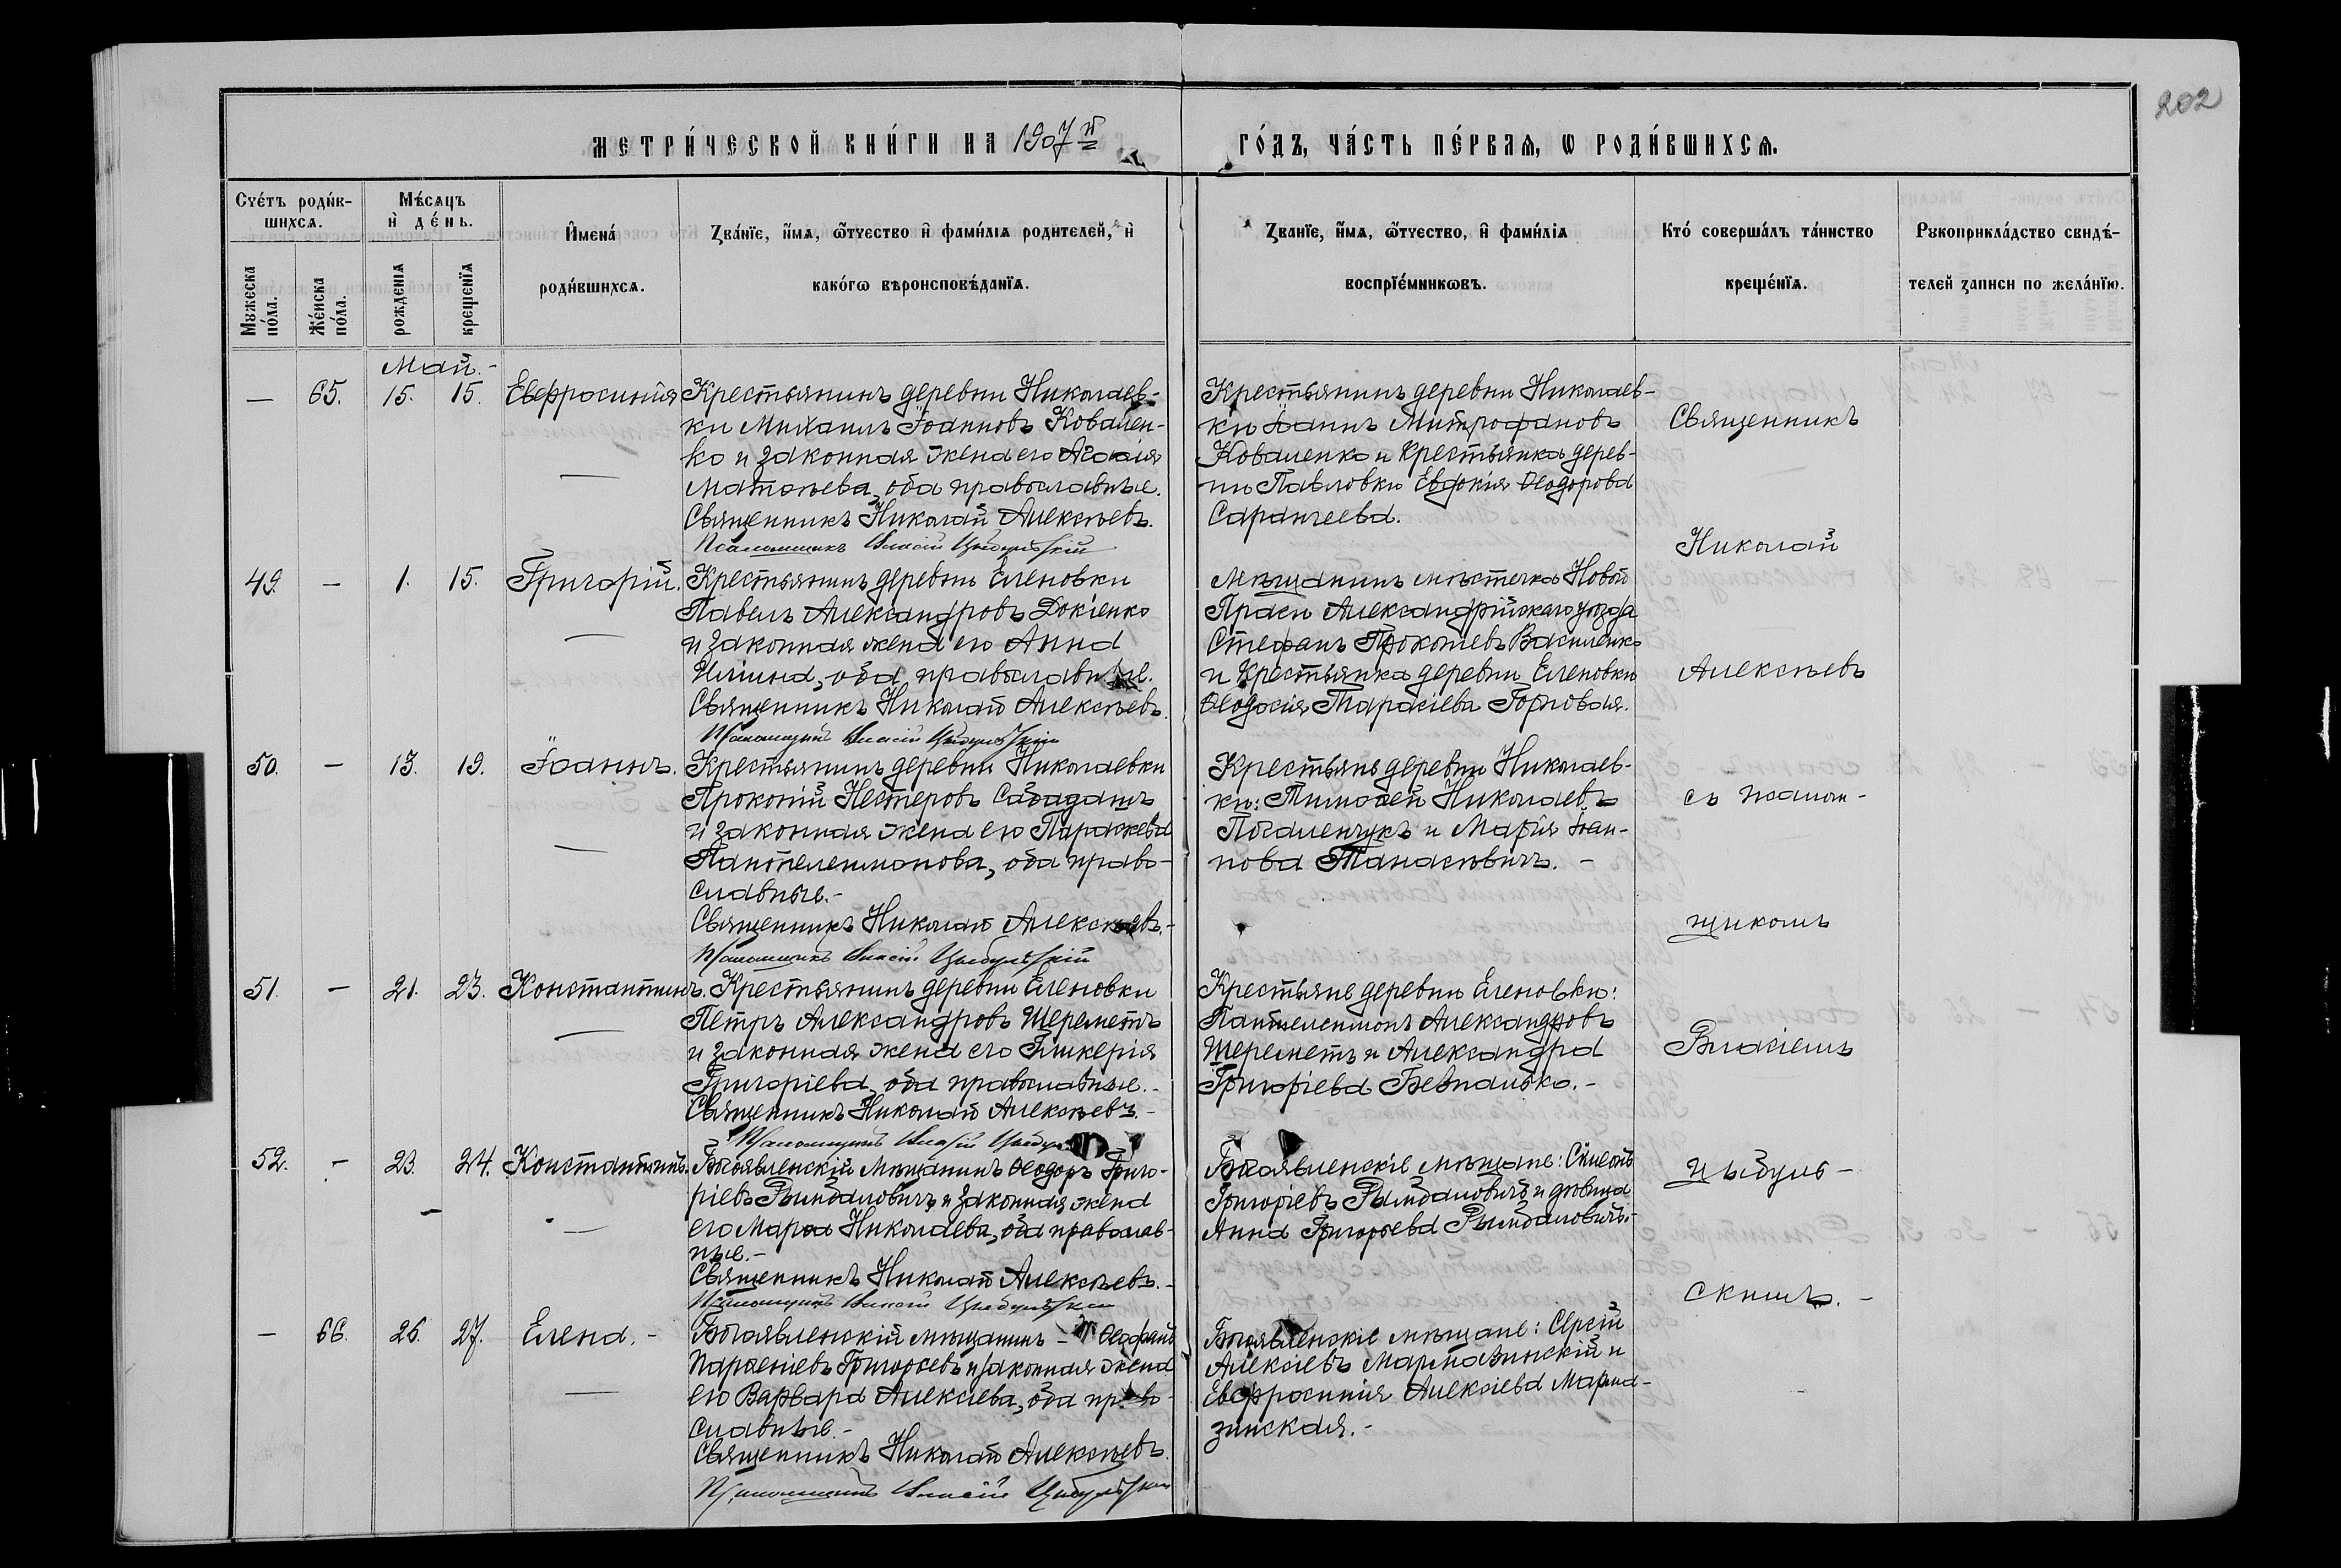 202
МЕТРИ́ЧЕСКОЙ КНИ́ГИ НА 1907й ГО́ДЪ, ЧА́СТЬ ПЕ́РВАѦ, Ѡ РОДИ́ВШИХСѦ.
Сче́тъ роди́в-
шихсѧ.
Мꙋжеска по́ла.
Же́нска по́ла.
Мѣ́сѧцъ
и҆ де́нь.
рожденїѧ
крещенїѧ
И҆мена́
роди́вшихсѧ.
Зва́нїе, и҆́мѧ, ѻ҆́тчество и҆ фами́лїѧ родителей, и҆
како́гѡ вѣроисповѣ́данїѧ.
Званїе, и҆́мѧ, ѻ҆́тчество, и҆ фами́лїѧ
воспрїе́мникѡвъ.
Кто́ соверша́лъ та́инство
креще́нїѧ.
Рꙋкоприкла́дство свидѣ́-
телей записи по жела́нїю.
Май.-
— 65. 15. 15. Евфросинія
Крестьянинъ деревни Николаев-
ки Михаилъ Іоанновъ Ковален-
ко и законная жена его Агафія
Матѳеева, оба православные.
Священникъ Николай Алексѣевъ.
Псаломщикъ Власій Цыбульскій
Крестьянинъ деревни Николаев-
ки Іоаннъ Митрофановъ
Коваленко и Крестьянка дерев-
ни Павловки Евдокія Ѳеодорова
Саранчева.
49. — 1. 15. Григорій.
Крестьянинъ деревни Еленовки
Павелъ Александровъ Докіенко
и законная жена его Анна
Иліина, оба православные.
Священникъ Николай Алексѣевъ.
Псаломщикъ Власій Цыбульскій
Мѣщанинъ мѣстечка Новой
Праги Александрійскаго уѣзда
Стефанъ Прокопіевъ Василенко
и Крестьянка деревни Еленовки
Ѳеодосія Тарасіева Горловая.
50. — 13. 19. Іоаннъ.
Крестьянинъ деревни Николаевки
Прокопій Нестеровъ Сабадашъ
и законная жена его Параскева
Пантелеимонова, оба право-
славные.-
Священникъ Николай Алексѣевъ.-
Псаломщикъ Власій Цыбульскій
Крестьяне деревни Николаев-
ки: Тимоѳей Николаевъ
и Марія Іоан-
нова Танасѣвичъ. -
51. — 21. 23. Константинъ.
Крестьянинъ деревни Еленовки
Петръ Александровъ Шереметъ
и законная жена его Гликерія
Григоріева, оба православные.-
Священникъ Николай Алексѣевъ.-
Псаломщикъ Власій
Крестьяне деревни Еленовки:
Пантелеимонъ Александровъ
Шереметъ и Александра
Григоріева Безпалько.-
52. — 23. 24. Константинъ.
Богоявленскій мѣщанинъ Ѳеодоръ Григо-
ріевъ Рымбаловичъ и законная жена
его Марѳа Николаева, оба православ-
ные.-
Священникъ Николай Алексѣевъ.-
Псаломщикъ Власій Цыбульскій
Богоявленскіе мѣщане: Симеонъ
Григоріевъ Рымбаловичъ и дѣвица
Анна Григорьева Рымбаловичъ.-
— 66. 26. 27. Елена.-
Богоявленскій мѣщанинъ - Ѳеофанъ
Парѳеніевъ Григорьевъ и законная жена
его Варвара Алексіева, оба право-
славные.-
Священникъ Николай Алексѣевъ.
Псаломщикъ Власій Цыбульскій
Богоявленскіе мѣщане: Сергій
Алексіевъ Мармазинскій и
Евфросинія Алексіева Марма-
зинская.-
Священникъ
Николай
Алексѣевъ
съ псалом-
щикомъ
Власіемъ
Цыбуль-
скимъ.-